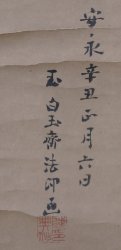 安永辛丑正月六日
玉白玉齋法印画